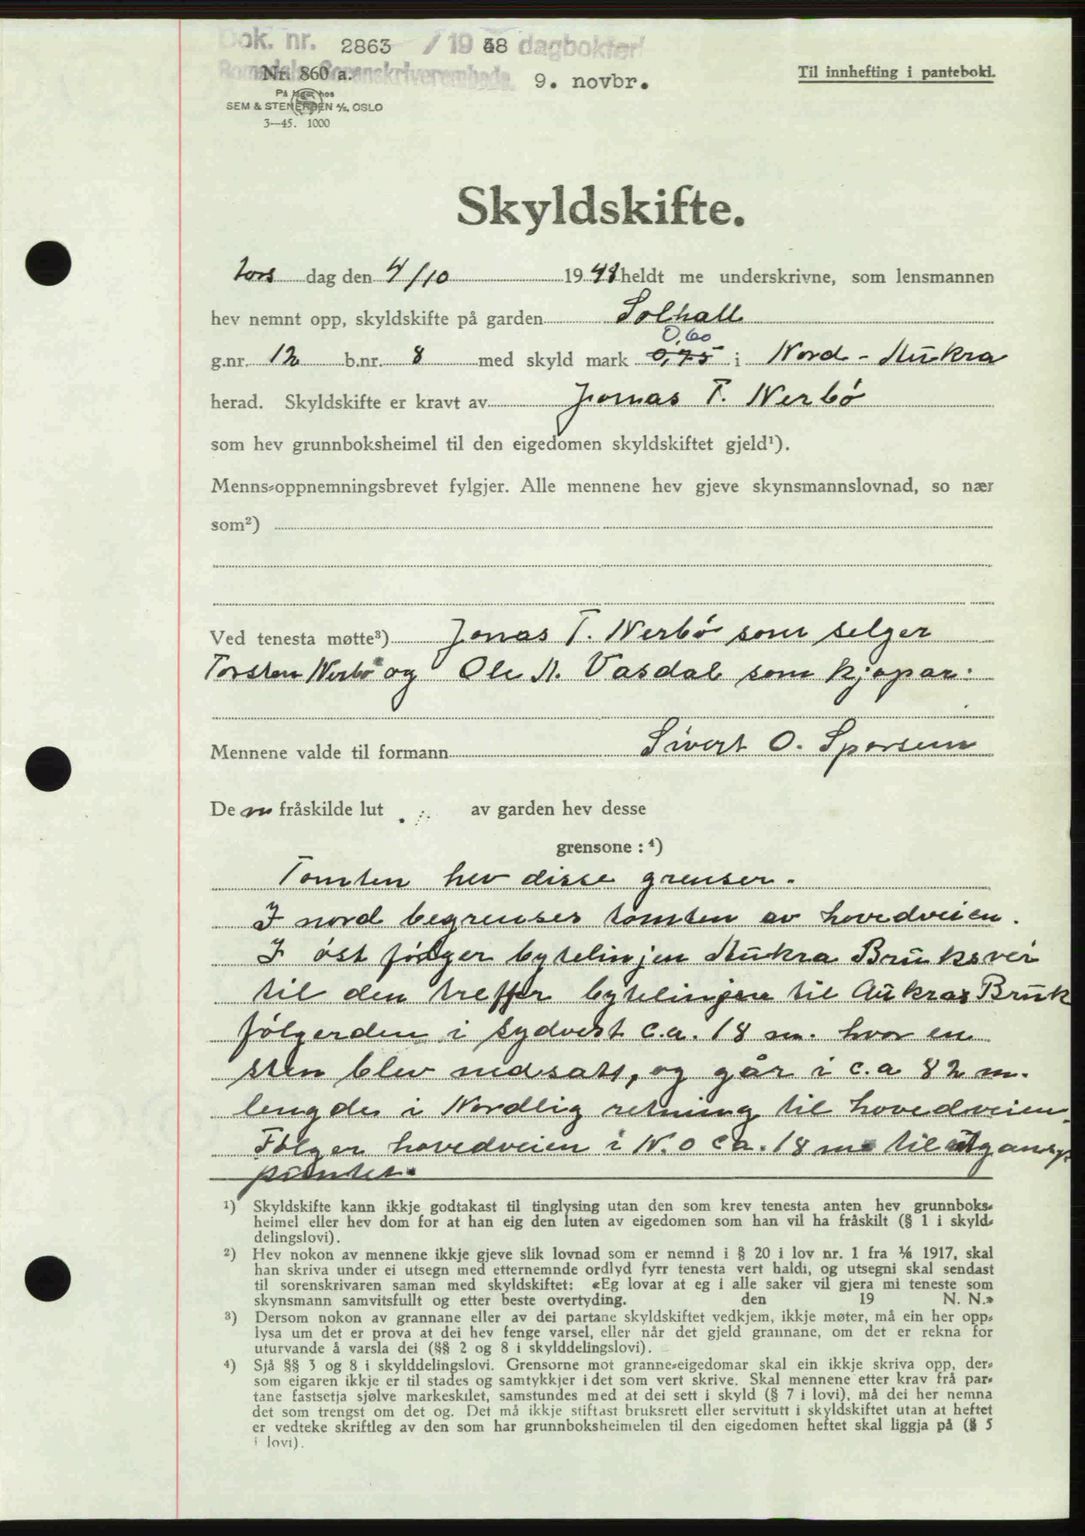 Dok. nr. 2863 / 1948 dagbokført
Romsdals Sorenskriverembede. 9. novbr.
Nr. 860 a.
På lager hos
SEM & STENERSEN A/S, OSLO
3—45. 1000
Til innhefting i pantebok.
Skyldskifte.
tors dag den 4/10 1948 heldt me underskrivne, som lensmannen
hev nemnt opp, skyldskifte på garden Solhall
0,60
g.nr. 12 b.nr. 8 med skyld mark 0,75 i Nord-Aukra
herad. Skyldskifte er kravt av Jonas T. Nerbö
som hev grunnboksheimel til den eigedomen skyldskiftet gjeld¹).
Menns-oppnemningsbrevet fylgjer. Alle mennene hev gjeve skynsmannslovnad, so nær
som²)
Ved tenesta møtte³) Jonas T. Nerbö som selger
Torsten Nerbö og Ole A. Vasdal som kjøpar.
Mennene valde til formann Sivert O. Sporsem
De n fråskilde lut av garden hev desse
grensone : ⁴)
Tomten hev disse grenser.
I nord begrenses tomten av hovedveien.
I öst fölger bytelinjen Aukra Bruksvei
til den treffer bytelinjene til Aukras Bruk
fölgerden i Sydvest c.a. 18 m. hvor en
sten blev nedsatt, og går i c.a 82 m.
lengde i Nordlig retning til hovedveien
Fölger hovedveien i N.O ca. 18 m til utgangs
punktet.
¹) Skyldskifte kann ikkje godtakast til tinglysing utan den som krev tenesta anten hev grunnboks-
heimel eller hev dom for at han eig den luten av eigedomen som han vil ha fråskilt (§ 1 i skyld-
delingslovi).
²) Hev nokon av mennene ikkje gjeve slik lovnad som er nemnd i § 20 i lov nr. 1 fra 1/6 1917, skal
han skriva under ei utsegn med etternemnde ordlyd fyrr tenesta vert haldi, og utsegni skal sendast
til sorenskrivaren saman med skyldskiftet: «Eg lovar at eg i alle saker vil gjera mi teneste som
skynsmann samvitsfullt og etter beste overtyding. den 19 N. N.»
³) Dersom nokon av grannane eller av dei partane skyldskiftet vedkjem, ikkje møter, må ein her opp-
lysa um det er prova at dei hev fenge varsel, eller når det gjeld grannane, om det er rekna for
uturvande å varsla dei (§§ 2 og 8 i skylddelingslovi).
⁴) Sjå §§ 3 og 8 i skylddelingslovi. Grensorne mot granne-eigedomar skal ein ikkje skriva opp, der-
som eigaren ikkje er til stades og samtykkjer i det som vert skrive. Skal mennene etter krav frå par-
tane fastsetja sjølve markeskilet, samstundes med at dei sett i skyld (§ 7 i lovi), må dei her nemna
det som trengst om det og. Det må ikkje stiftast bruksrett eller servitutt i skyldskiftet utan at heftet
er vedteke skriftleg av den som har grunnboksheimelen til den eigedomen heftet skal liggja på (§ 5
i lovi).